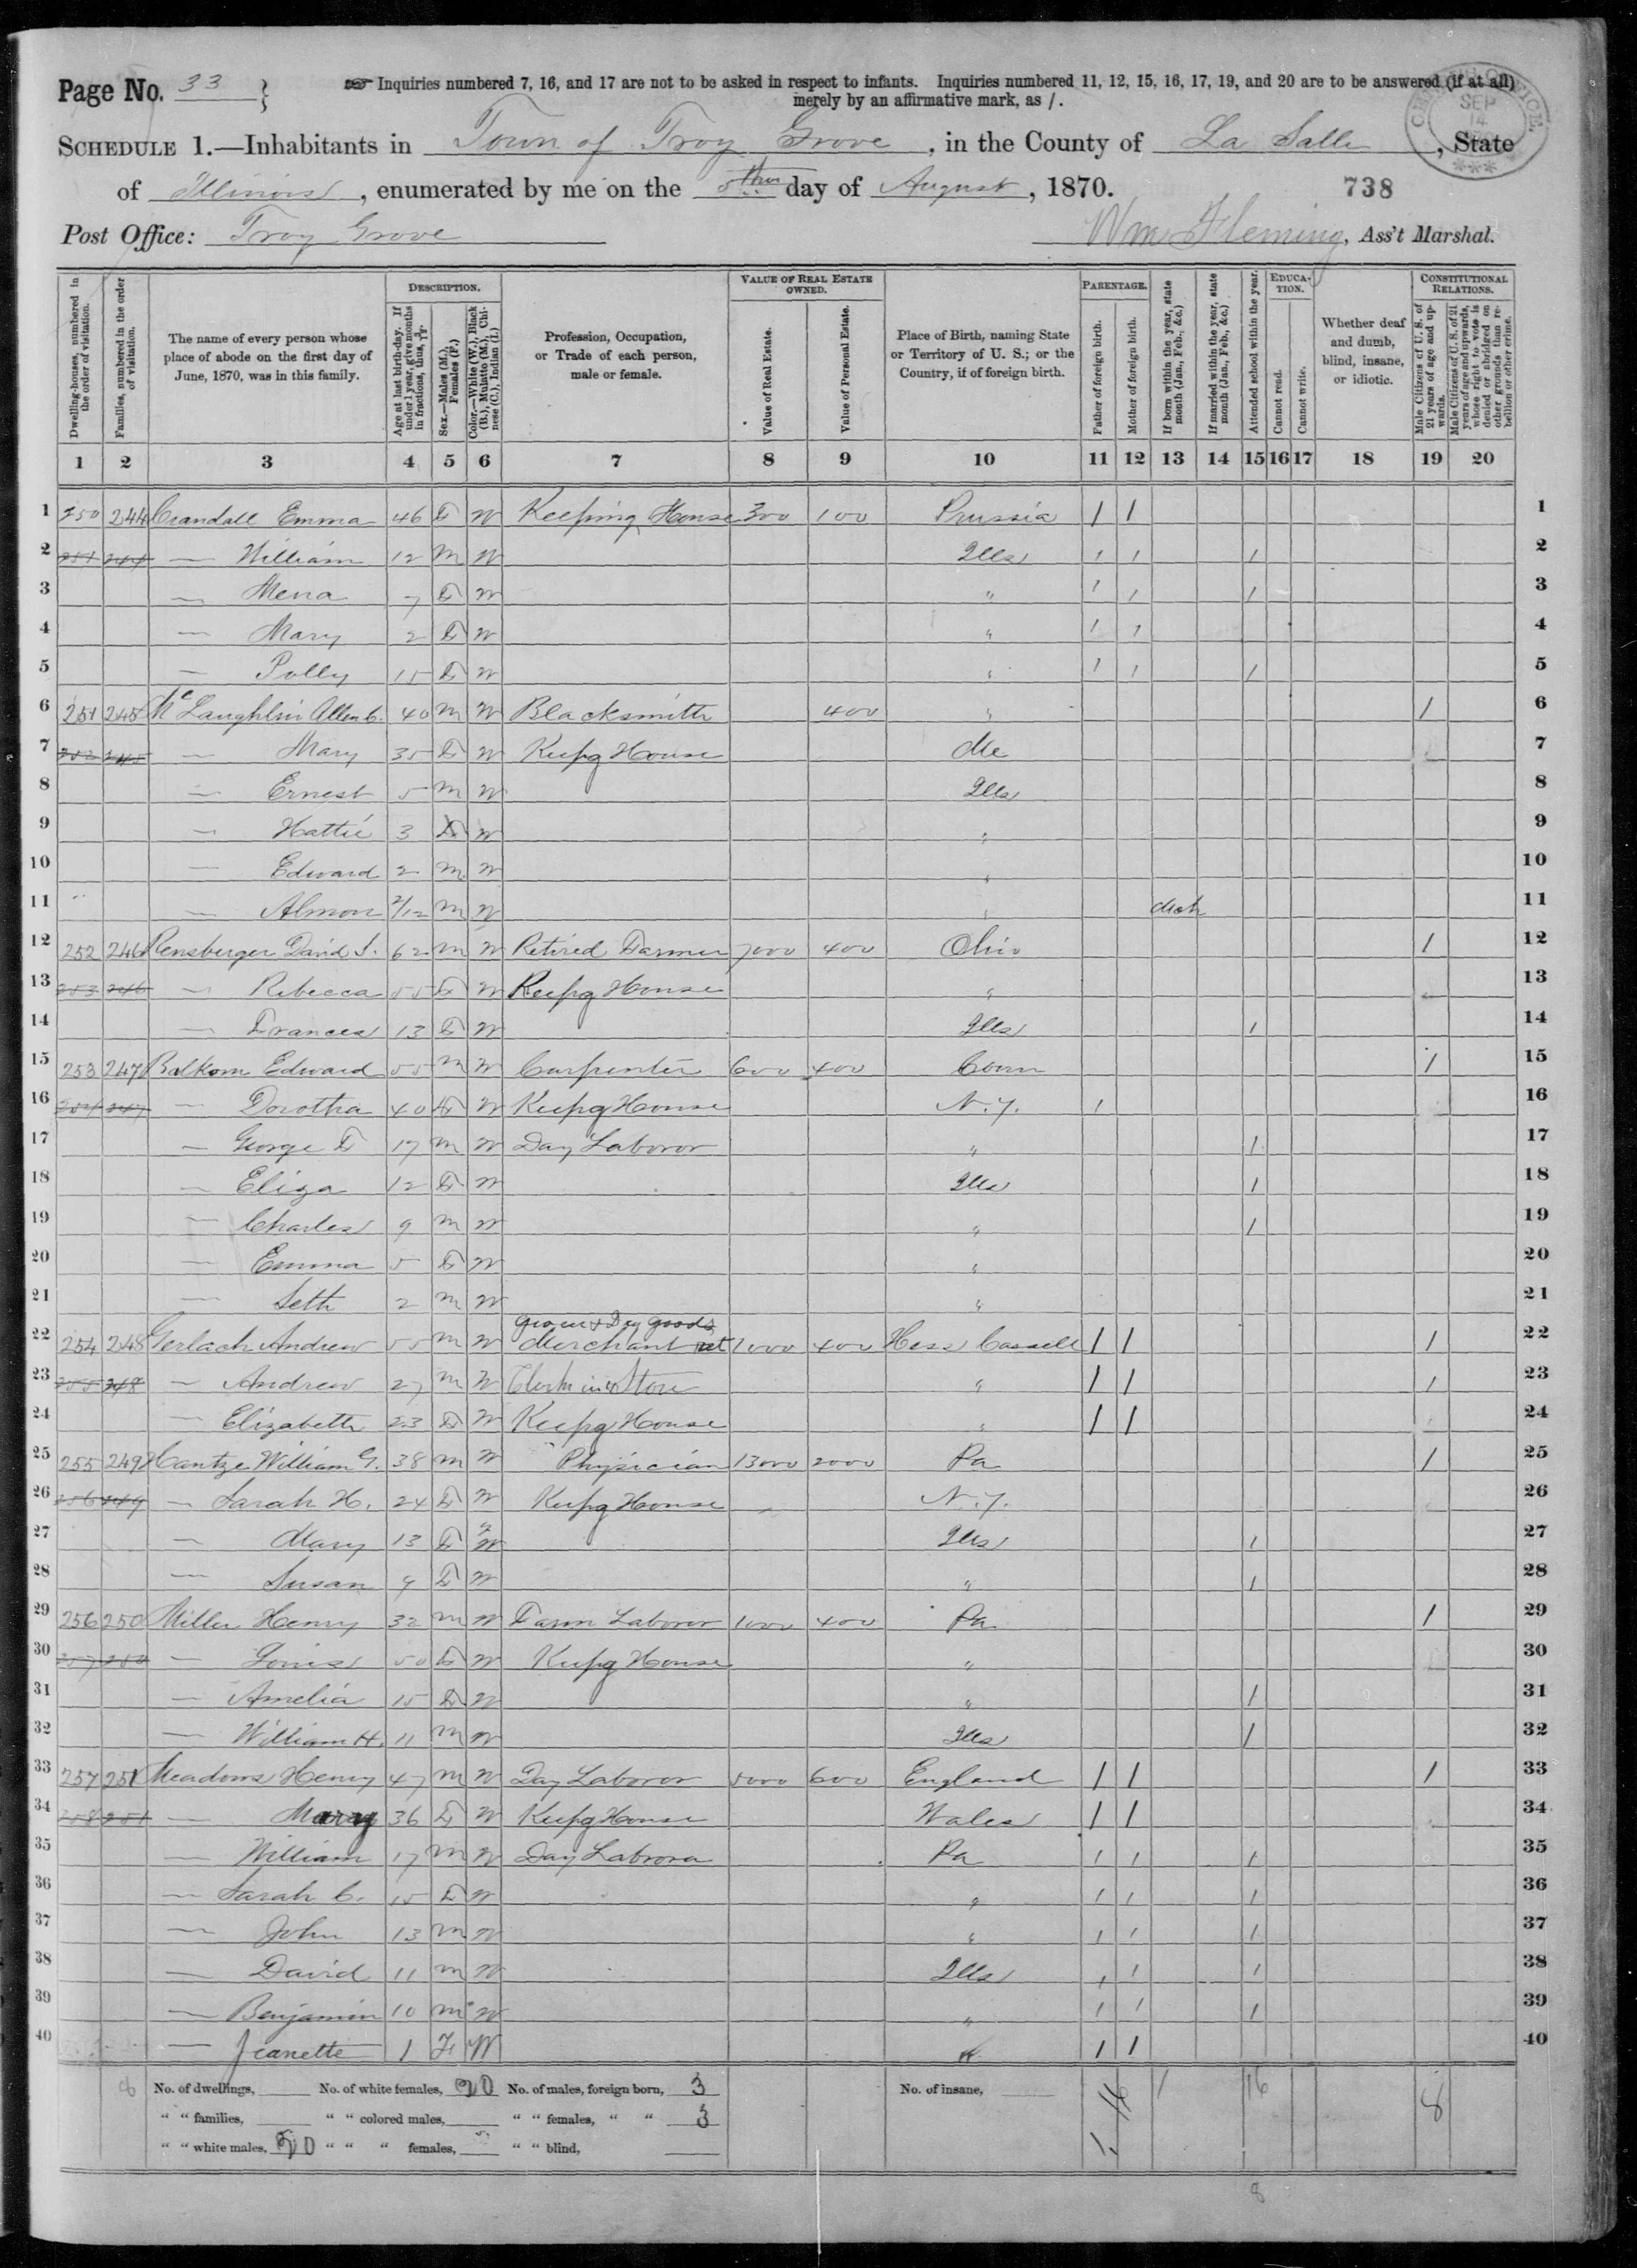 Page No. 33
Inquiries numbered 7, 16, and 17 are not to be asked in respect to infants. Inquiries numbered 11, 12, 15, 16, 17, 19, and 20 are to be answered (if at all)
merely by an affirmative mark, as /.
SCHEDULE 1.—Inhabitants in Town of Troy Grove, in the County of La Salle, State
of Illinois, enumerated by me on the 5th day of August, 1870.
738
SEP 14
Post Office: Troy Grove
Wm Fleming, Ass't Marshal.
Dwelling-houses, numbered in the order of visitation.
Families, numbered in the order of visitation.
The name of every person whose place of abode on the first day of June, 1870, was in this family.
DESCRIPTION.
Age at last birth-day. If under 1 year, give months in fractions, thus, 3/12.
Sex.—Males (M.), Females (F.)
Color.—White (W.), Black (B.), Mulatto (M.), Chinese (C.), Indian (I.)
Profession, Occupation, or Trade of each person, male or female.
VALUE OF REAL ESTATE OWNED.
Value of Real Estate.
Value of Personal Estate.
Place of Birth, naming State or Territory of U. S.; or the Country, if of foreign birth.
PARENTAGE.
Father of foreign birth.
Mother of foreign birth.
If born within the year, state month (Jan., Feb., &c.)
If married within the year, state month (Jan., Feb., &c.)
Attended school within the year.
EDUCATION.
Cannot read.
Cannot write.
Whether deaf and dumb, blind, insane, or idiotic.
CONSTITUTIONAL RELATIONS.
Male Citizens of U. S. of 21 years of age and upwards.
Male Citizens of U. S. of 21 years of age and upwards, whose right to vote is denied or abridged on other grounds than rebellion or other crime.
1 2 3 4 5 6 7 8 9 10 11 12 13 14 15 16 17 18 19 20
1 250 244 Crandall Emma 46 F W Keeping House 300 100 Prussia / / 1
2 251 244 — William 12 M W Ills / / / 2
3 — Mena 7 F W " / / / 3
4 — Mary 2 F W " / / 4
5 — Polly 15 F W " / / / 5
6 251 245 McLaughlin Allen C. 40 M W Blacksmith 400 " / 6
7 252 245 — Mary 35 F W Keepg House Me 7
8 — Ernest 5 M W Ills 8
9 — Hattie 3 F W " 9
10 — Edward 2 M W " 10
11 — Almon 2/12 M W " Mch 11
12 252 246 Rensberger David S. 62 M W Retired Farmer 7000 400 Ohio / 12
13 253 246 — Rebecca 55 F W Keepg House " 13
14 — Frances 13 F W Ills / 14
15 253 247 Balkom Edward 55 M W Carpenter 600 400 Conn / 15
16 254 247 — Dorotha 40 F W Keepg House N.Y. / 16
17 — George F 17 M W Day Laboror " / 17
18 — Eliza 12 F W Ills / 18
19 — Charles 9 M W " / 19
20 — Emma 5 F W " 20
21 — Seth 2 M W " 21
Grocer & Dry Goods
22 254 248 Gerlach Andrew 55 M W Merchant ret 1000 400 Hess Cassell / / / 22
23 255 248 — Andrew 27 M W Clerk in Store " / / / 23
24 — Elizabeth 23 F W Keepg House " / / 24
25 255 249 Hantze William G. 38 M W Physician 13000 2000 Pa / 25
26 256 249 — Sarah H. 24 F W Keepg House N.Y. 26
27 — Mary 13 F W Ills / 27
28 — Susan 9 F W " / 28
29 256 250 Miller Henry 32 M W Farm Laboror 1000 400 Pa / 29
30 257 250 — Louisa 50 F W Keepg House " 30
31 — Amelia 15 F W " / 31
32 — William H. 11 M W Ills / 32
33 257 251 Meadows Henry 47 M W Day Laboror 5000 600 England / / / 33
34 258 251 — Mary 36 F W Keepg House Wales / / 34
35 — William 17 M W Day Labrora Pa / / / 35
36 — Sarah C. 15 F W " / / / 36
37 — John 13 M W " / / / 37
38 — David 11 M W Ills / / / 38
39 — Benjamin 10 M W " / / / 39
40 — Jeanette 1 F W " / / 40
8 No. of dwellings, No. of white females, 20 No. of males, foreign born, 3 No. of insane, 16 1 16 8
" " families, " " colored males, " " females, " " 3
" " white males, 20 " " " females, " " blind,
8